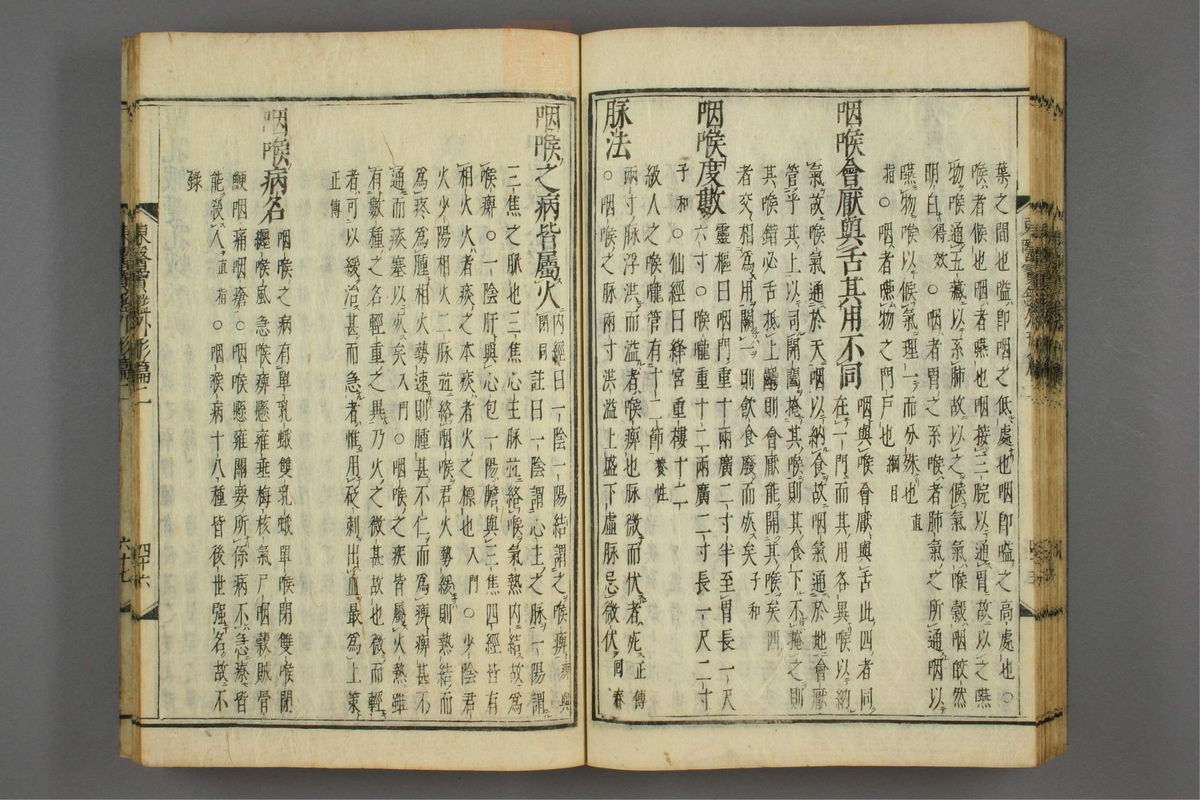 葉之間也嗌卽咽之低處也咽卽嗌之高處也○
喉候也咽者嚥也咽接三脘以通胃故以之嚥
物喉通五藏以系肺故以之候氣氣喉穀咽皎然
明白得效○咽者胃之系喉者肺氣之所通咽以
嚥物喉以候氣理一而分殊也直
指○咽者嚥物之門戶也綱目
咽喉會厭與舌其用不同咽與喉會厭與舌此四者同
在一門而其用各異喉以納
氣故喉氣通於天咽以納食故咽氣通於地會厭
管乎其上以司開闔掩其喉則其食下不掩之則
其喉錯必舌抵上齶則會厭能開其喉矣四
者交相爲用闕一則飲食廢而死矣子和
咽喉度數靈樞曰咽門重十兩廣二寸半至胃長一尺
六寸○喉嚨重十二兩廣二寸長一尺二寸
子和○仙經曰絳宮重樓十二
級人之喉嚨管有十二節養性
脉法
兩寸脉浮洪而溢者喉痺也脉微而伏者死正傳
○咽喉之脉兩寸洪溢上盛下虛脉忌微伏回春
咽喉之病皆屬火內經曰一陰一陽結謂之喉痺痺與
閉同註曰一陰謂心主之脉一陽謂
三焦之脉也三焦心主脉並絡喉氣熱內結故爲
喉痺○一陰肝與心包一陽膽與三焦四經皆有
相火火者痰之本痰者火之標也入門○少陰君
火少陽相火二脉並絡咽喉君火勢緩則熱結而
爲疼爲腫相火勢速則腫甚不仁而爲痺痺甚不
通而痰塞以死矣入門○咽喉之疾皆屬火熱雖
有數種之名輕重之異乃火之微甚故也微而輕
者可以緩治甚而急者惟用砭刺出血最爲上策
正傳
咽喉病名咽喉之病有單乳蛾雙乳蛾單喉閉雙喉閉
纏喉風急喉痺懸雍垂梅核氣尸咽穀賊骨
鯁咽痛咽瘡○咽喉懸雍關要所係病不急療皆
能殺人直指○咽喉病十八種皆後世强名故不
錄
東醫寶鑑外形篇二